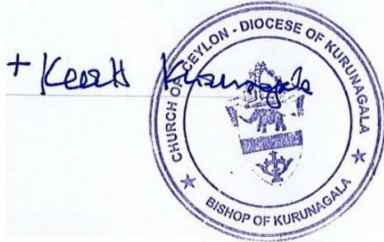 + Keerthi Kurunagala
CHURCH OF CEYLON - DIOCESE OF KURUNAGALA
BISHOP OF KURUNAGALA